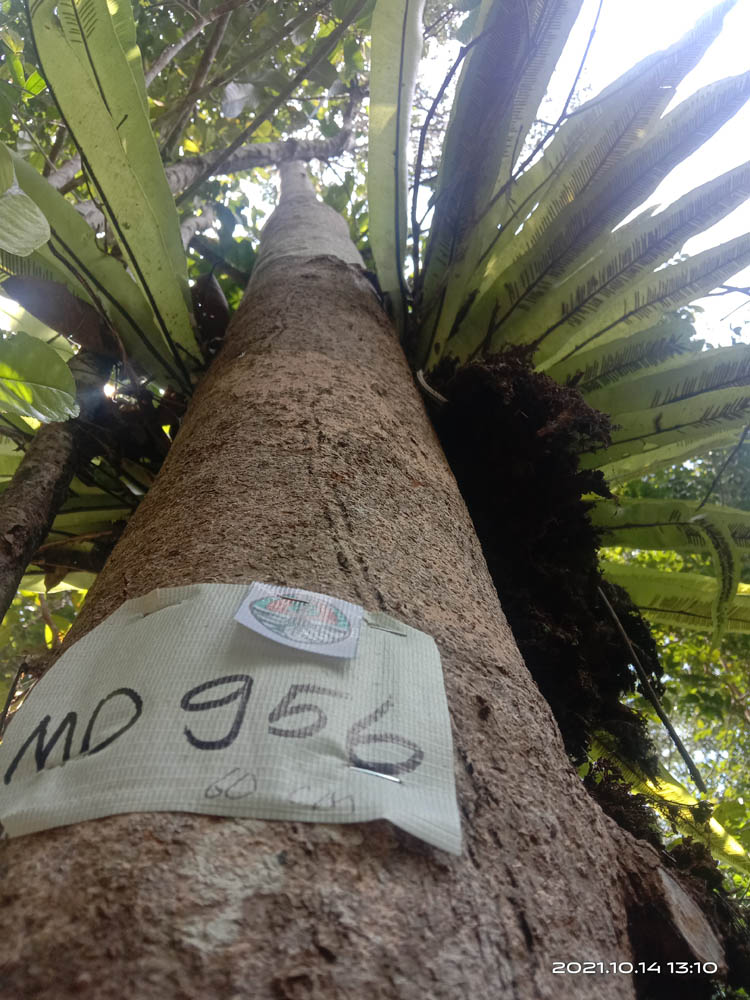 MD 956
60 cm
2021.10.14 13:10